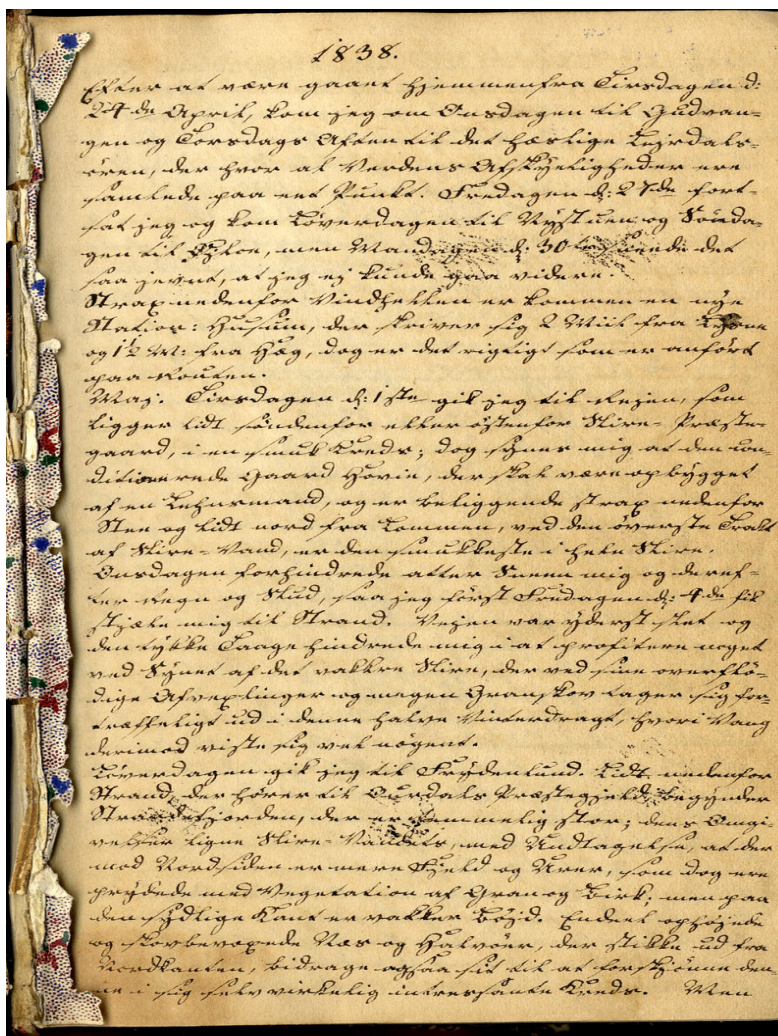 1838.
Efter at være gaaet hjemmenfra Tirsdagen d:
24de April, kom jeg om Onsdagen til Gudvan-
gen og Torsdags Aften til det hæslige Lejrdals-
ören, der hvor al Verdens Afskyeligheder ere
samlede paa eet Punkt. Fredagen d: 27de fort-
sat jeg og kom Löverdagen til Nystuen og Sönda-
gen til Öyloe, men Mandagen d: 30 sneede det
saa jevnt, at jeg ej kunde gaa videre.
Strax nedenfor Vindhellen er kommen en nye
Station: Husum, der skriver sig 2 Miil fra
og 1½ M: fra Hæg, dog er det rigtigt som er anført
paa Routen.
Maj. Tirsdagen d: 1ste gik jeg til Reien, som
ligger lidt söndenfor eller östenfor Slire-Præste-
gaard, i en smuk Kreds; dog synes mig at den con-
ditionerede Gaard Hovie, der skal være opbygget
af en Lehnsmand, og er beliggende strax nedenfor
Steen og lidt nord fra Lommen, ved den överste Trakt
af Slire-Vand, er den smukkeste i hele Slire.
Onsdagen forhindrede atter Sneen mig og deref-
ter Regn og Slud, saa jeg först Fredagen d: 4de fik
stjæle mig til Strand. Vejen var yderst slet og
den tykke Taage hindrede mig i at profitere noget
ved Synet af det vakkre Slire, der ved sine overflö-
dige Afvexlinger og megen Granskov tager sig for-
træffeligt ud i denne halve Vinterdragt, hvori Vang
derimod viste sig vel nögent.
Löverdagen gik jeg til Frydenlund. Lidt nedenfor
Strand, der hörer til Ourdals Præstegjeld, begynder
Strandefjorden, der er temmelig stor; dens Omgi-
velser ligne Slire-Vandets, med Undtagelse, at der
mod Nordsiden er mere Fjeld og Urer, som dog ere
prydede med Vegetation af Gran og Birk; men paa
den sydlige Kant er vakker Böjd. Endeel ophöjede
og skovbevoxede Næs og Halvöer, der stikke ud fra
Nordkanten, bidrage ogsaa sit til at forskjönne den-
ne i sig selv virkelig intressante Kreds. Men